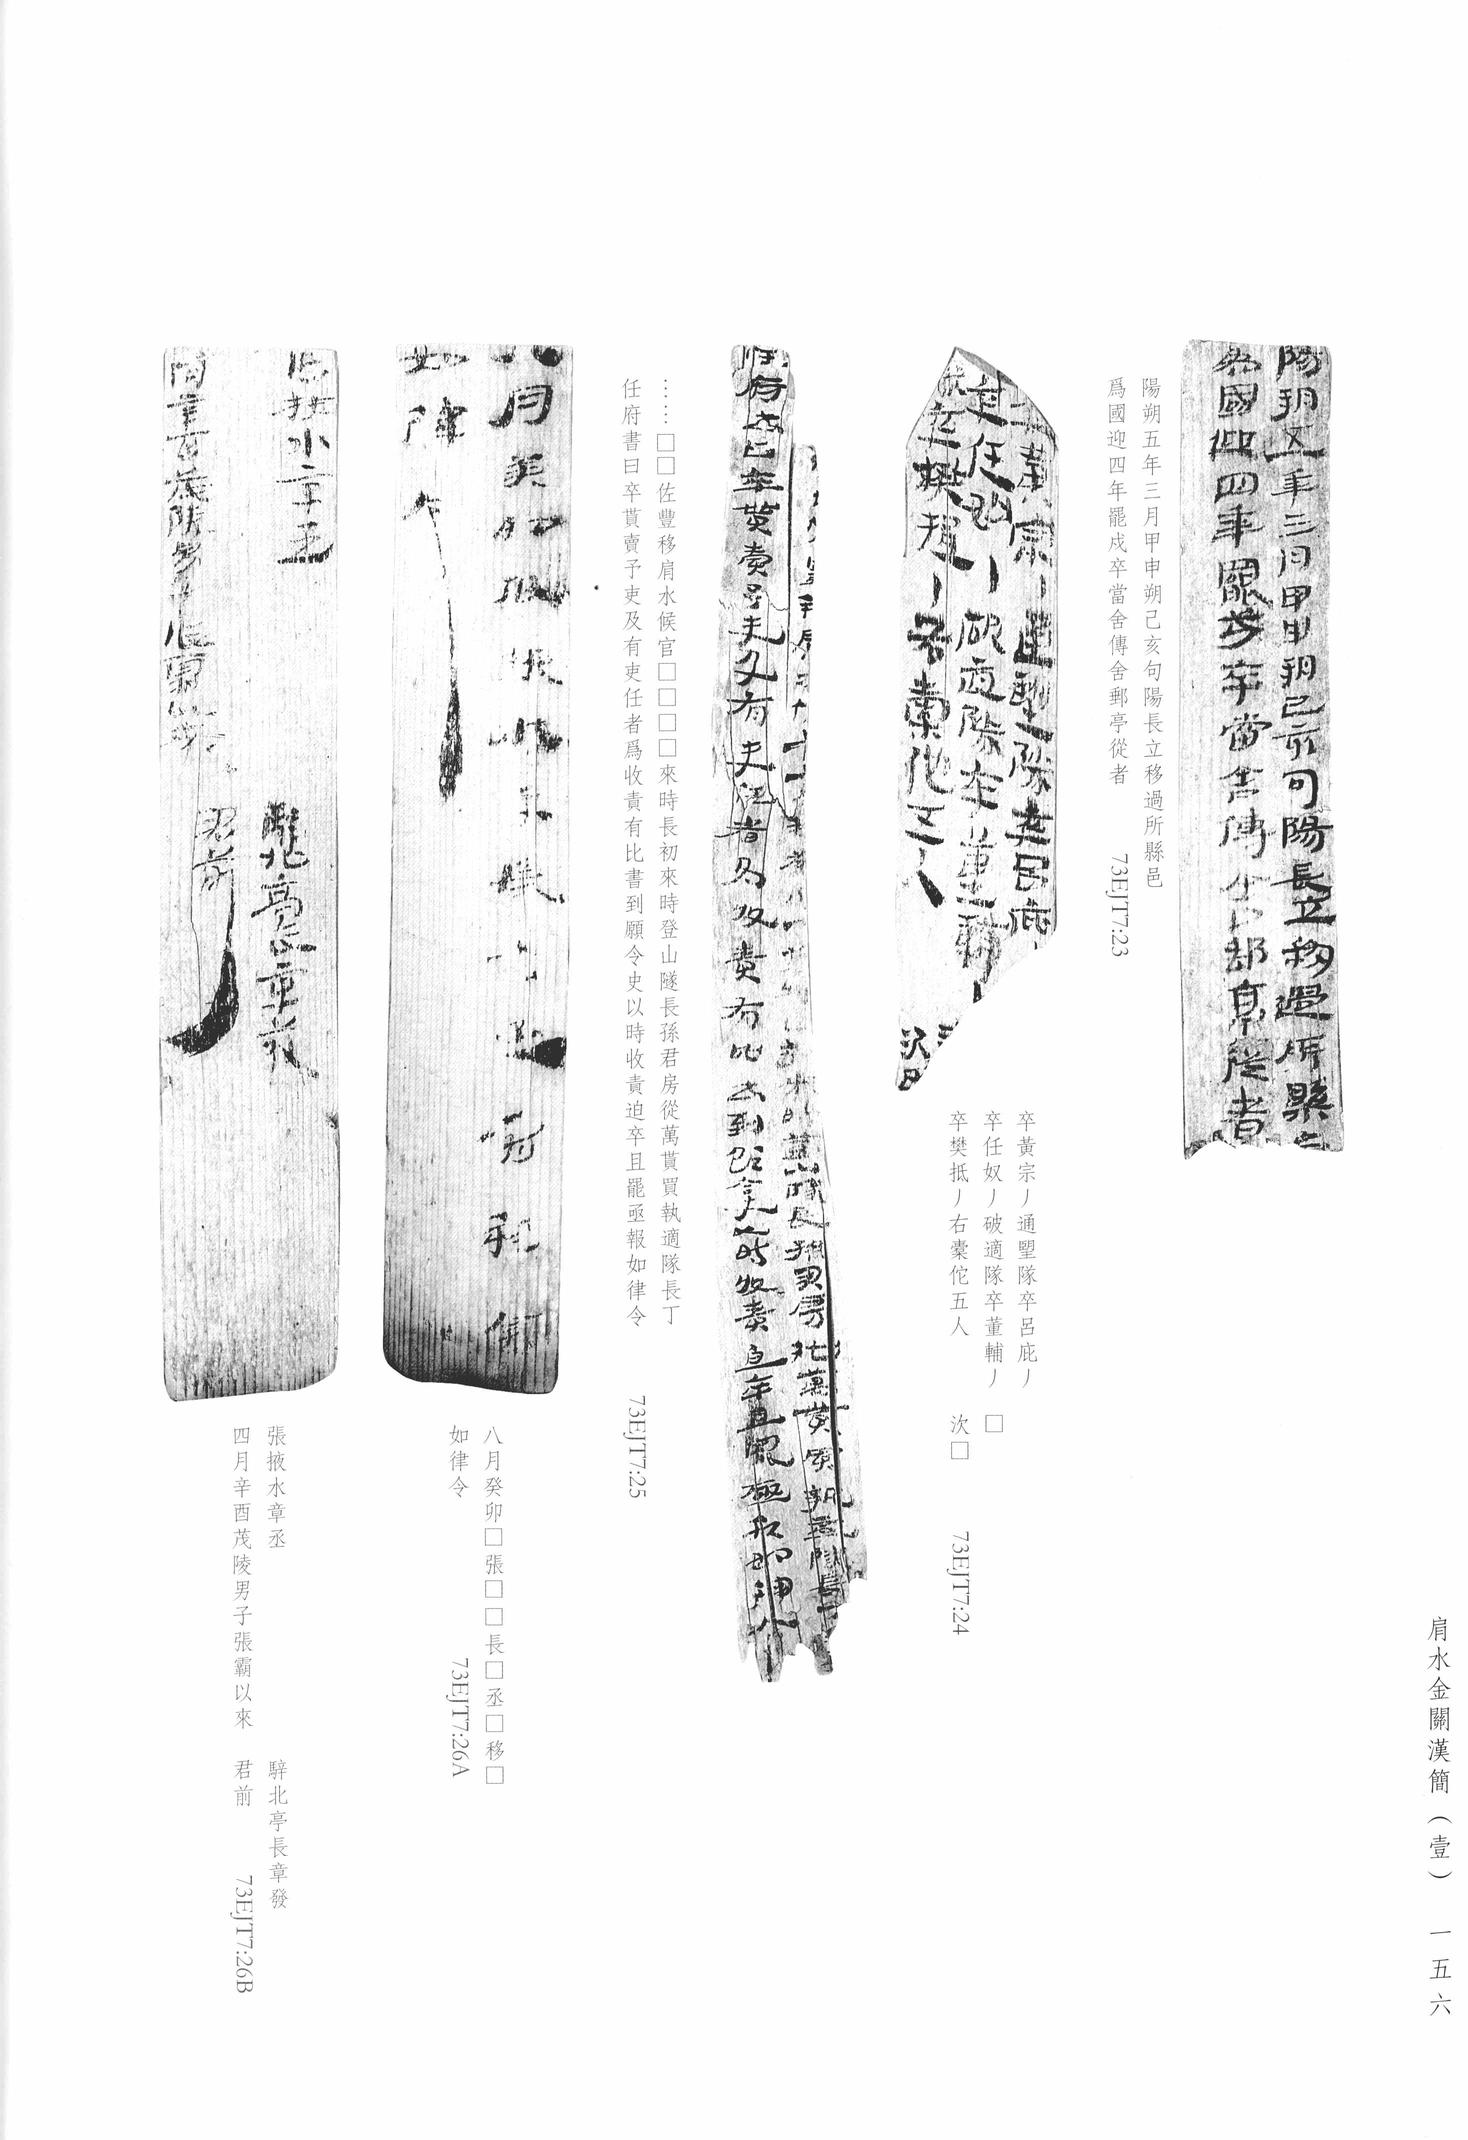 陽朔五年三月甲申朔己亥句陽長立移過所縣邑
爲國迎四年罷戍卒當舍傳舍郵亭從者
73EJT7:23
卒黃宗丿通朢隊卒呂庇丿
卒任奴丿破適隊卒董輔丿 □
卒樊抵丿右橐佗五人 次□
73EJT7:24
……□□佐豐移肩水候官□□□□來時長初來時登山隧長孫君房從萬貰買執適隊長丁
任府書曰卒貰賣予吏及有吏任者爲收責有比書到願令史以時收責迫卒且罷亟報如律令
73EJT7:25
八月癸卯□張□□長□丞□移□
如律令
73EJT7:26A
張掖水章丞 騂北亭長章發
四月辛酉茂陵男子張霸以來 君前
73EJT7:26B
肩水金關漢簡（壹） 一五六